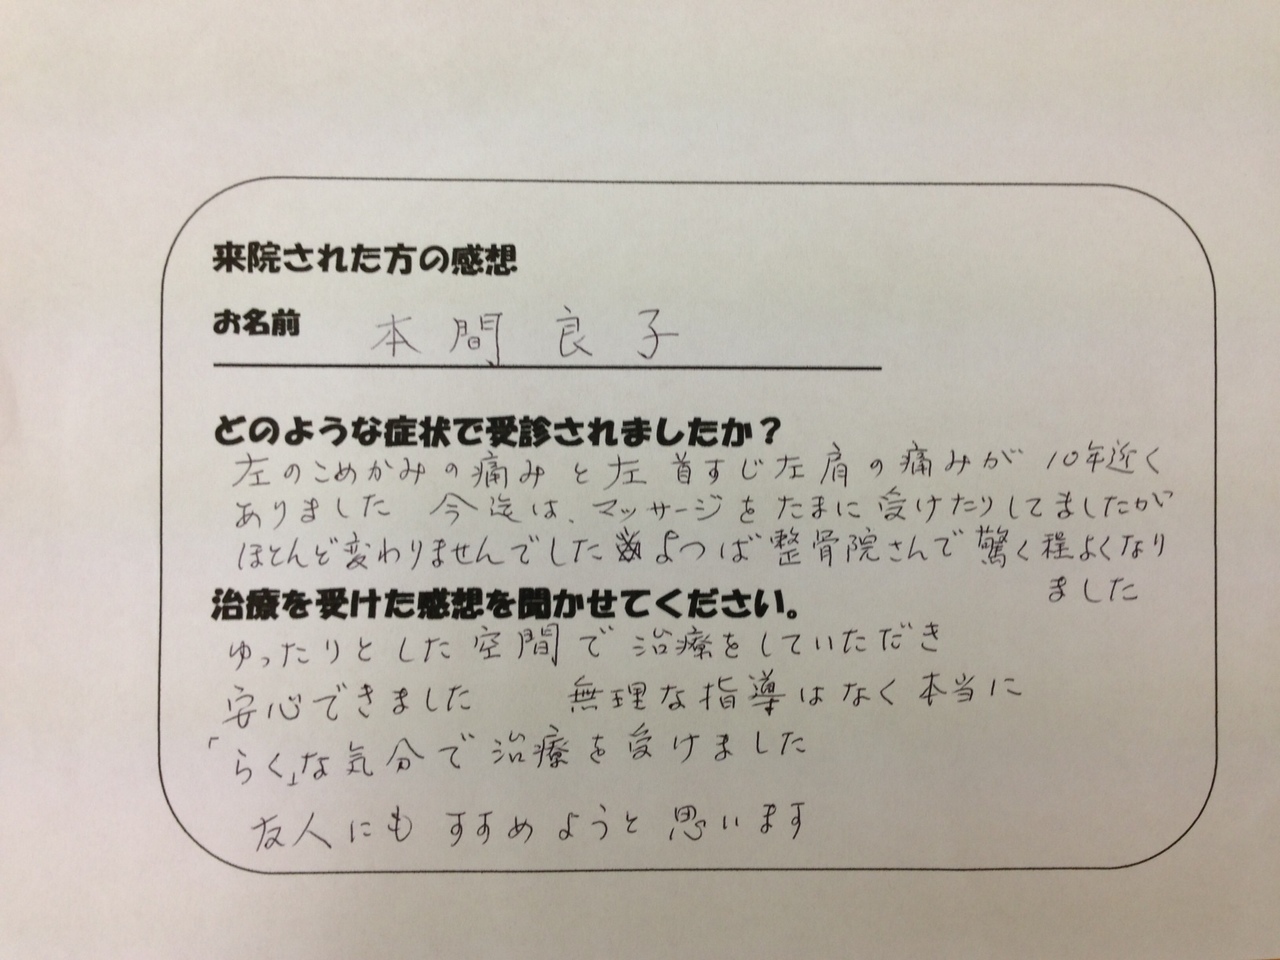 来院された方の感想
お名前 本間良子
どのような症状で受診されましたか？
左のこめかみの痛みと左首すじ左肩の痛みが10年近く
ありました 今迄は、マッサージをたまに受けたりしてましたが
ほとんど変わりませんでした よつば整骨院さんで驚く程よくなり
ました
治療を受けた感想を聞かせてください。
ゆったりとした空間で治療をしていただき
安心できました 無理な指導はなく本当に
「らく」な気分で治療を受けました
友人にもすすめようと思います